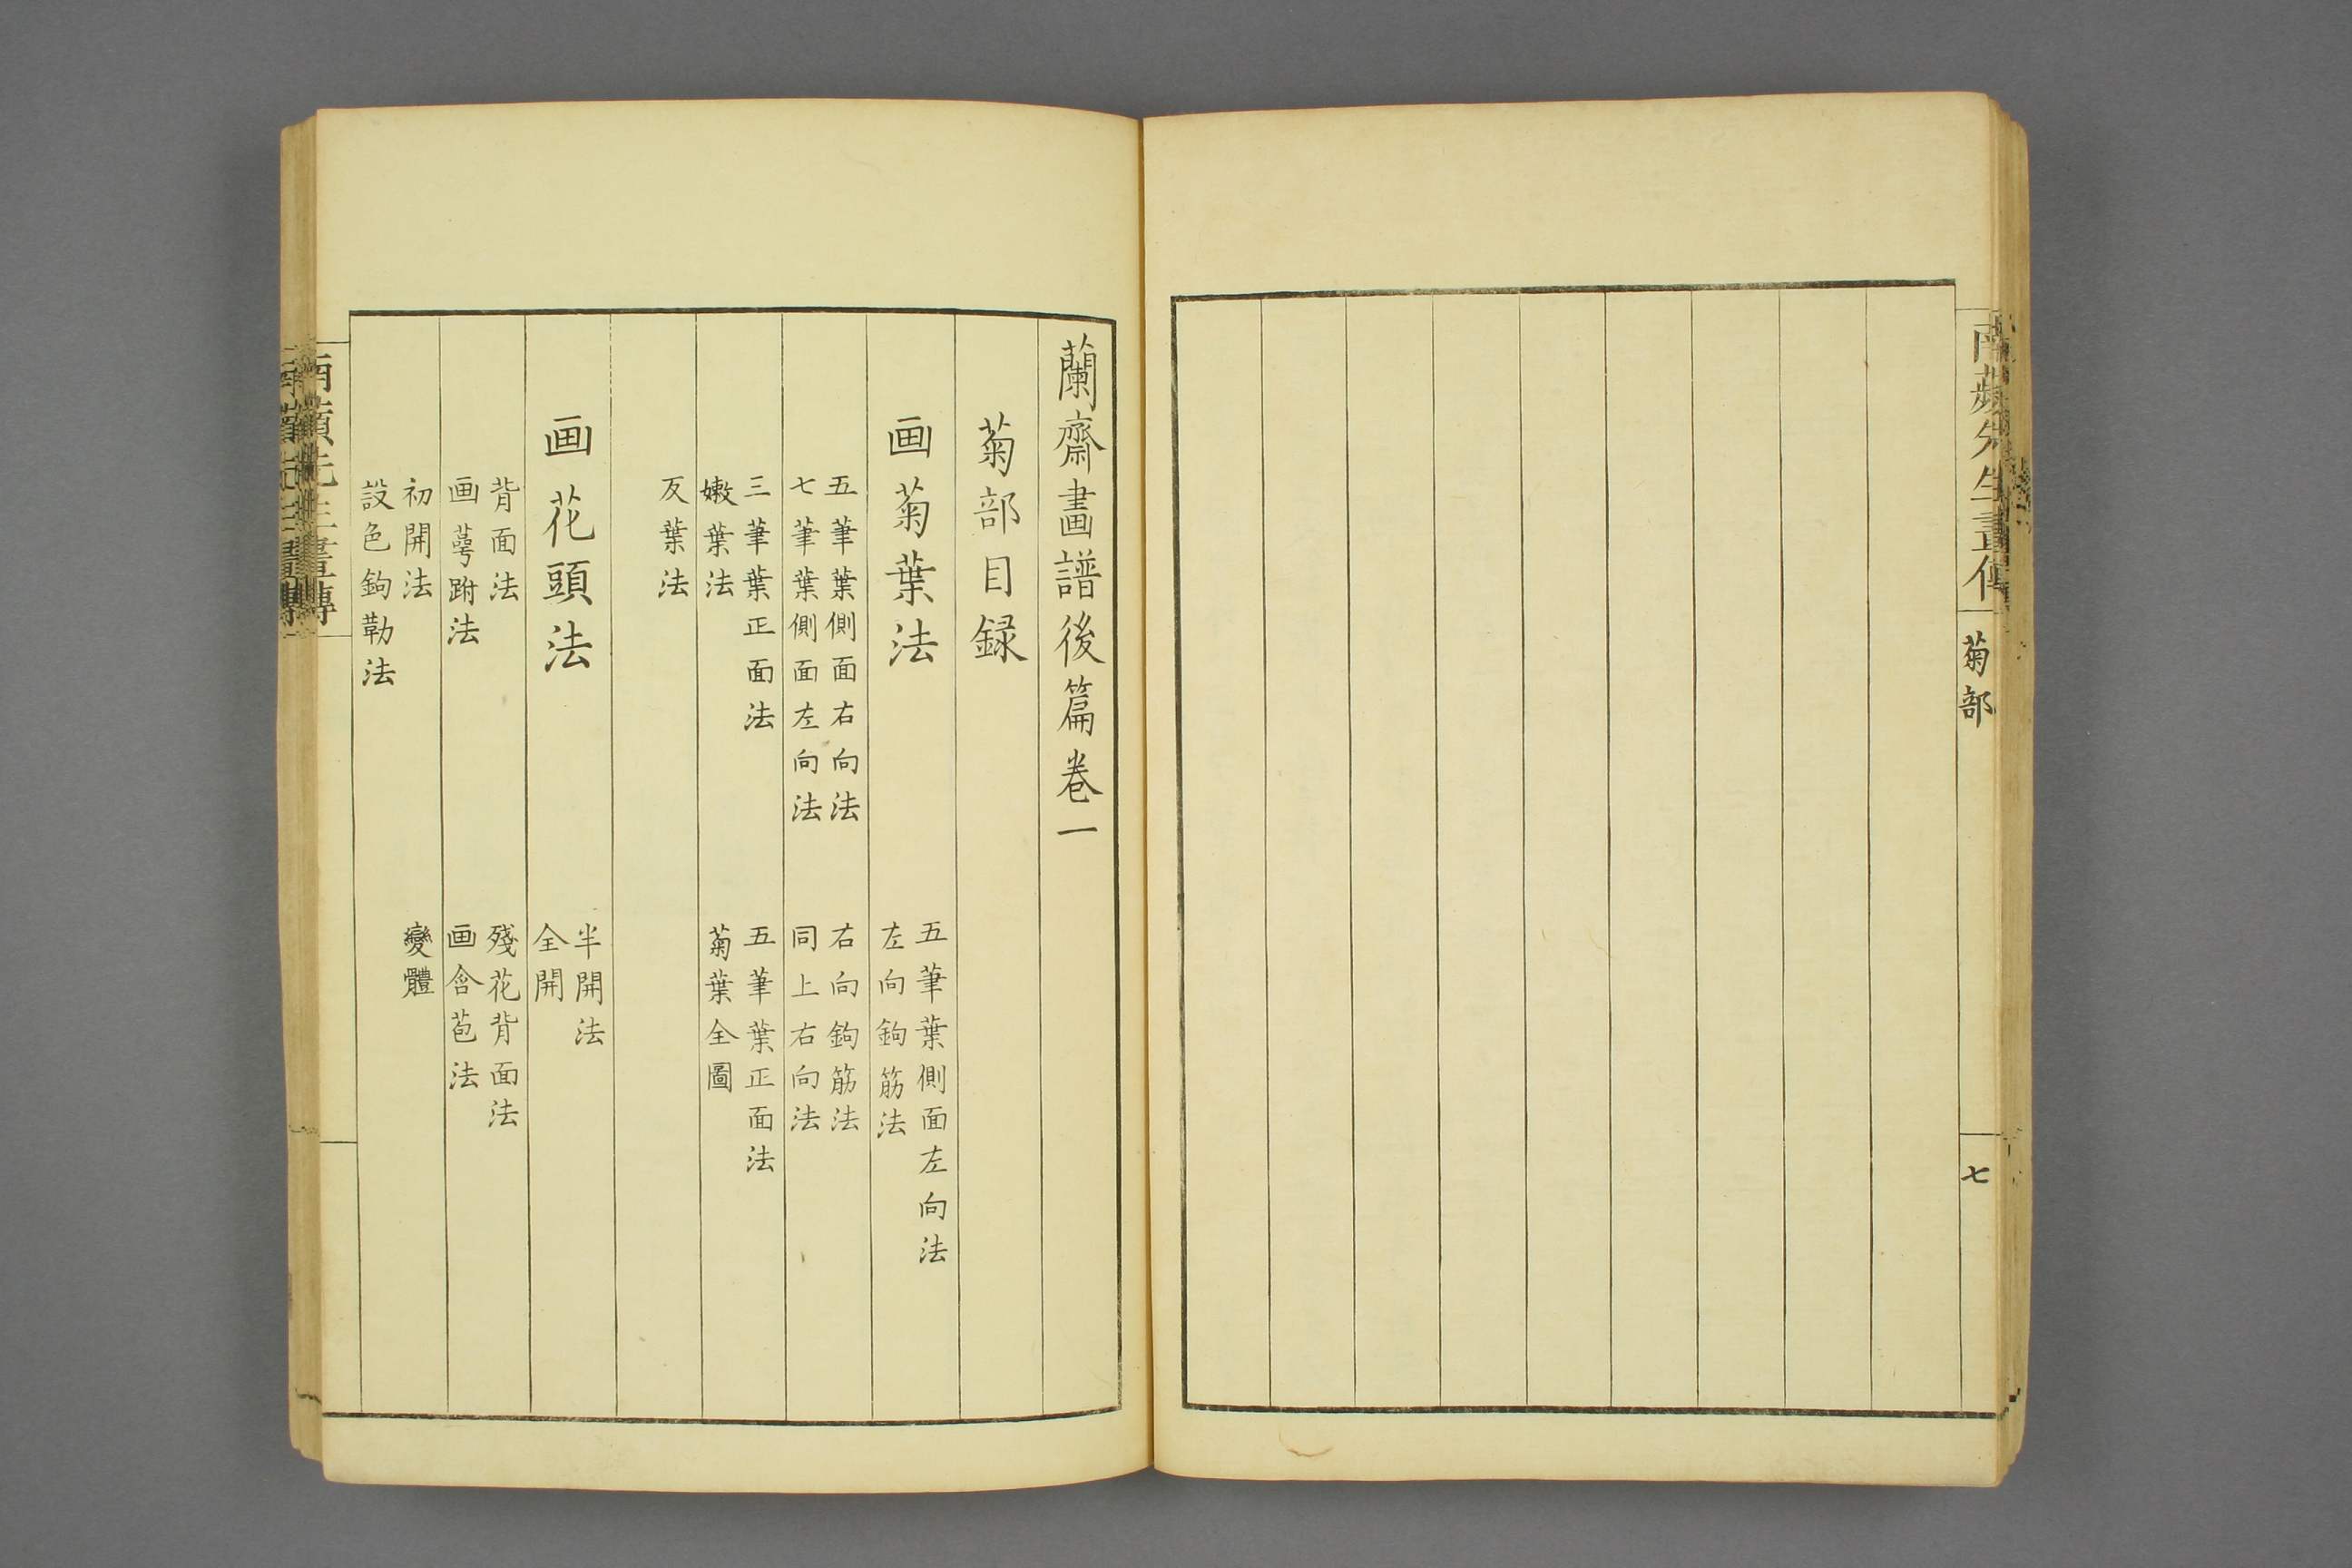 南蘋先生畫傳
菊部
七
蘭齋畫譜後篇卷一
菊部目録
画菊葉法
五筆葉側面左向法
左向鉤筋法
五筆葉側面右向法
右向鉤筋法
七筆葉側面左向法
同上右向法
三筆葉正面法
五筆葉正面法
嫩葉法
菊葉全圖
反葉法
画花頭法
半開法
全開
背面法
殘花背面法
画萼跗法
画含苞法
初開法
變體
設色鉤勒法
南蘋先生畫傳